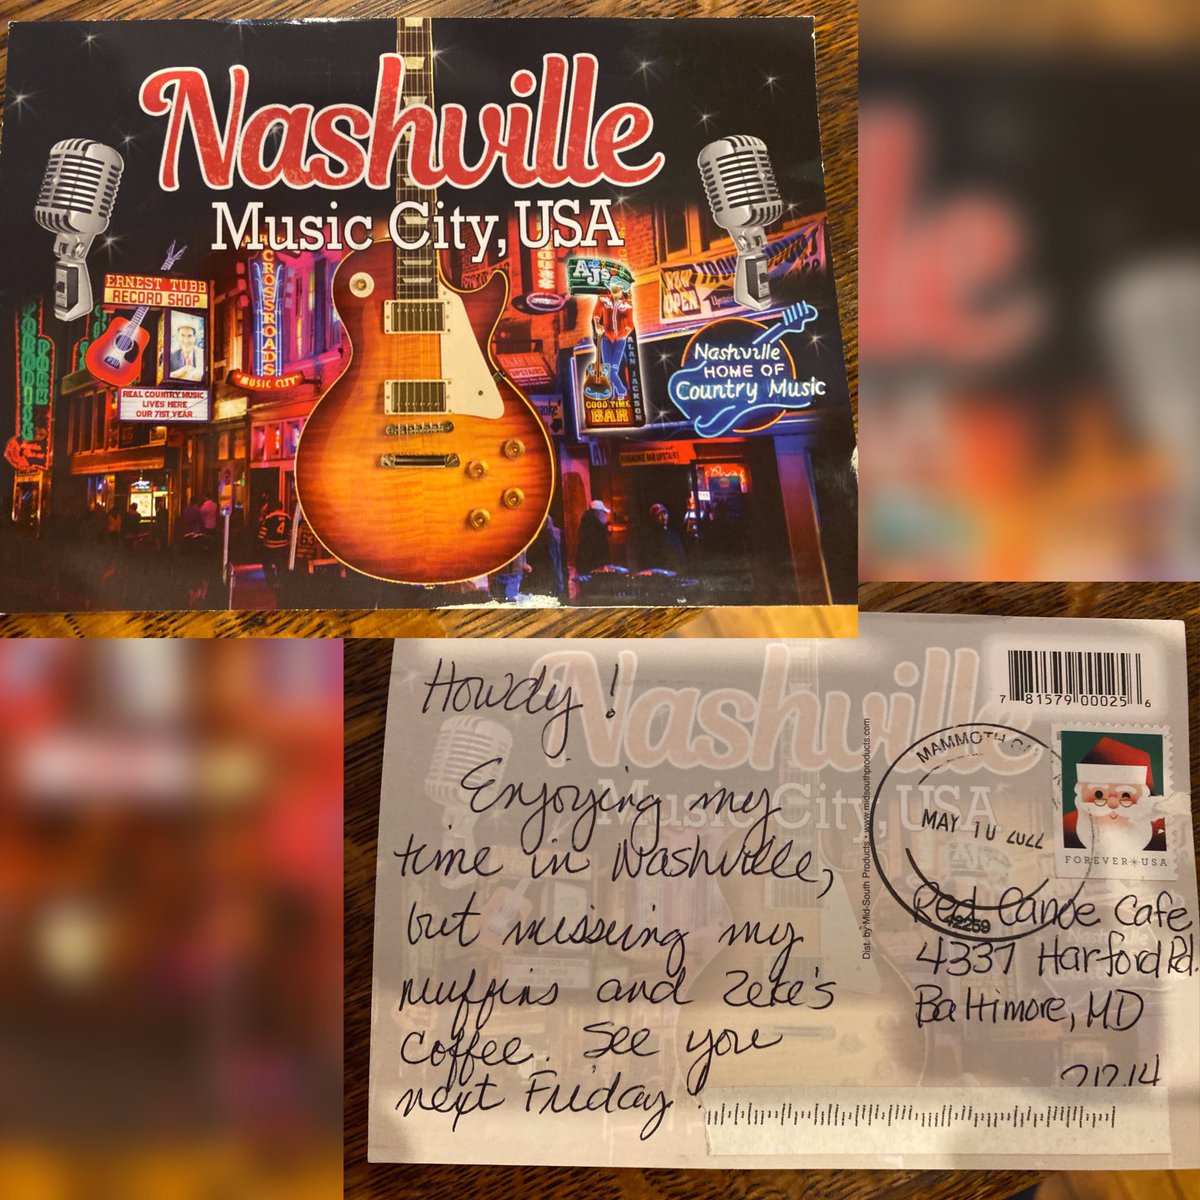 Nashville
Music City, USA
ERNEST TUBB
RECORD SHOP
REAL COUNTRY MUSIC
LIVES HERE
OUR 71ST YEAR
CROSSROADS
"MUSIC CITY"
AJ's
ALAN JACKSON
GOOD TIME
BAR
NOW
OPEN
Nashville
HOME OF
Country Music
KARAOKE BAR UPSTAIRS
Howdy!
Enjoying my
time in Nashville,
but missing my
muffins and Zeke's
coffee. See you
next Friday.
Nashville
Music City, USA
Dist. by Mid-South Products • www.midsouthproducts.com
7 81579 00025 6
MAMMOTH
MAY 10 2022
42259
FOREVER USA
Red Canoe Cafe
4337 Harford Rd.
Baltimore, MD
21214